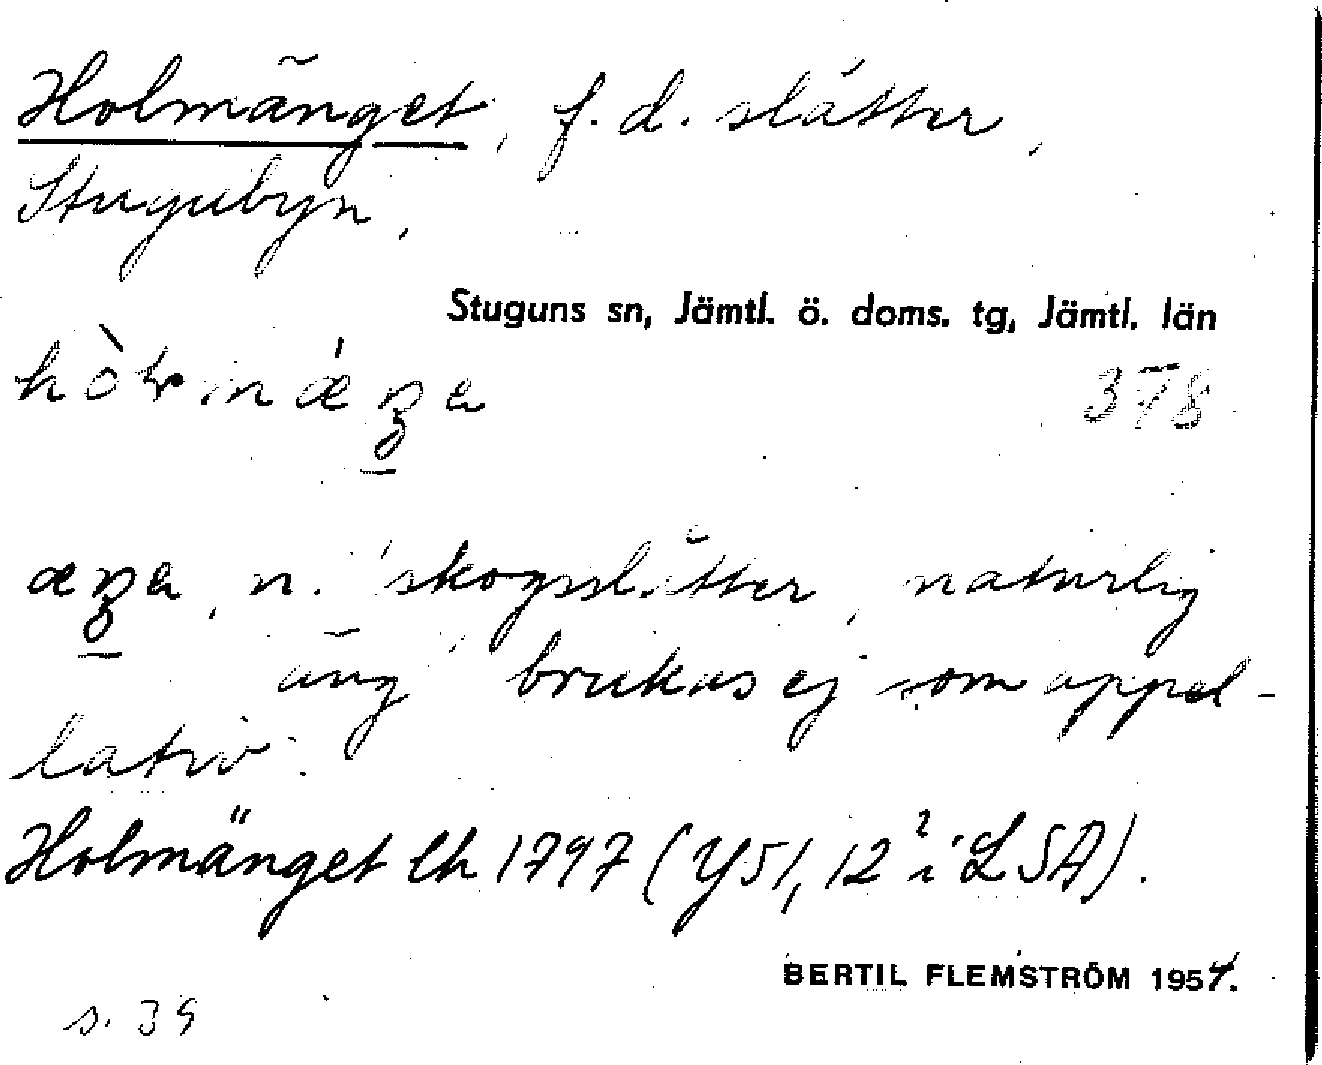 Holmänget, f.d. slåtter,
Stugubyn,
Stuguns sn, Jämtl. ö. doms. tg, Jämtl. län
378
n. 'skogsslåtter, naturlig
äng' brukas ej som appel-
lativ.
Holmänget lh 1797 (Y51, 12² i LSA).
BERTIL FLEMSTRÖM 1954.
s. 39